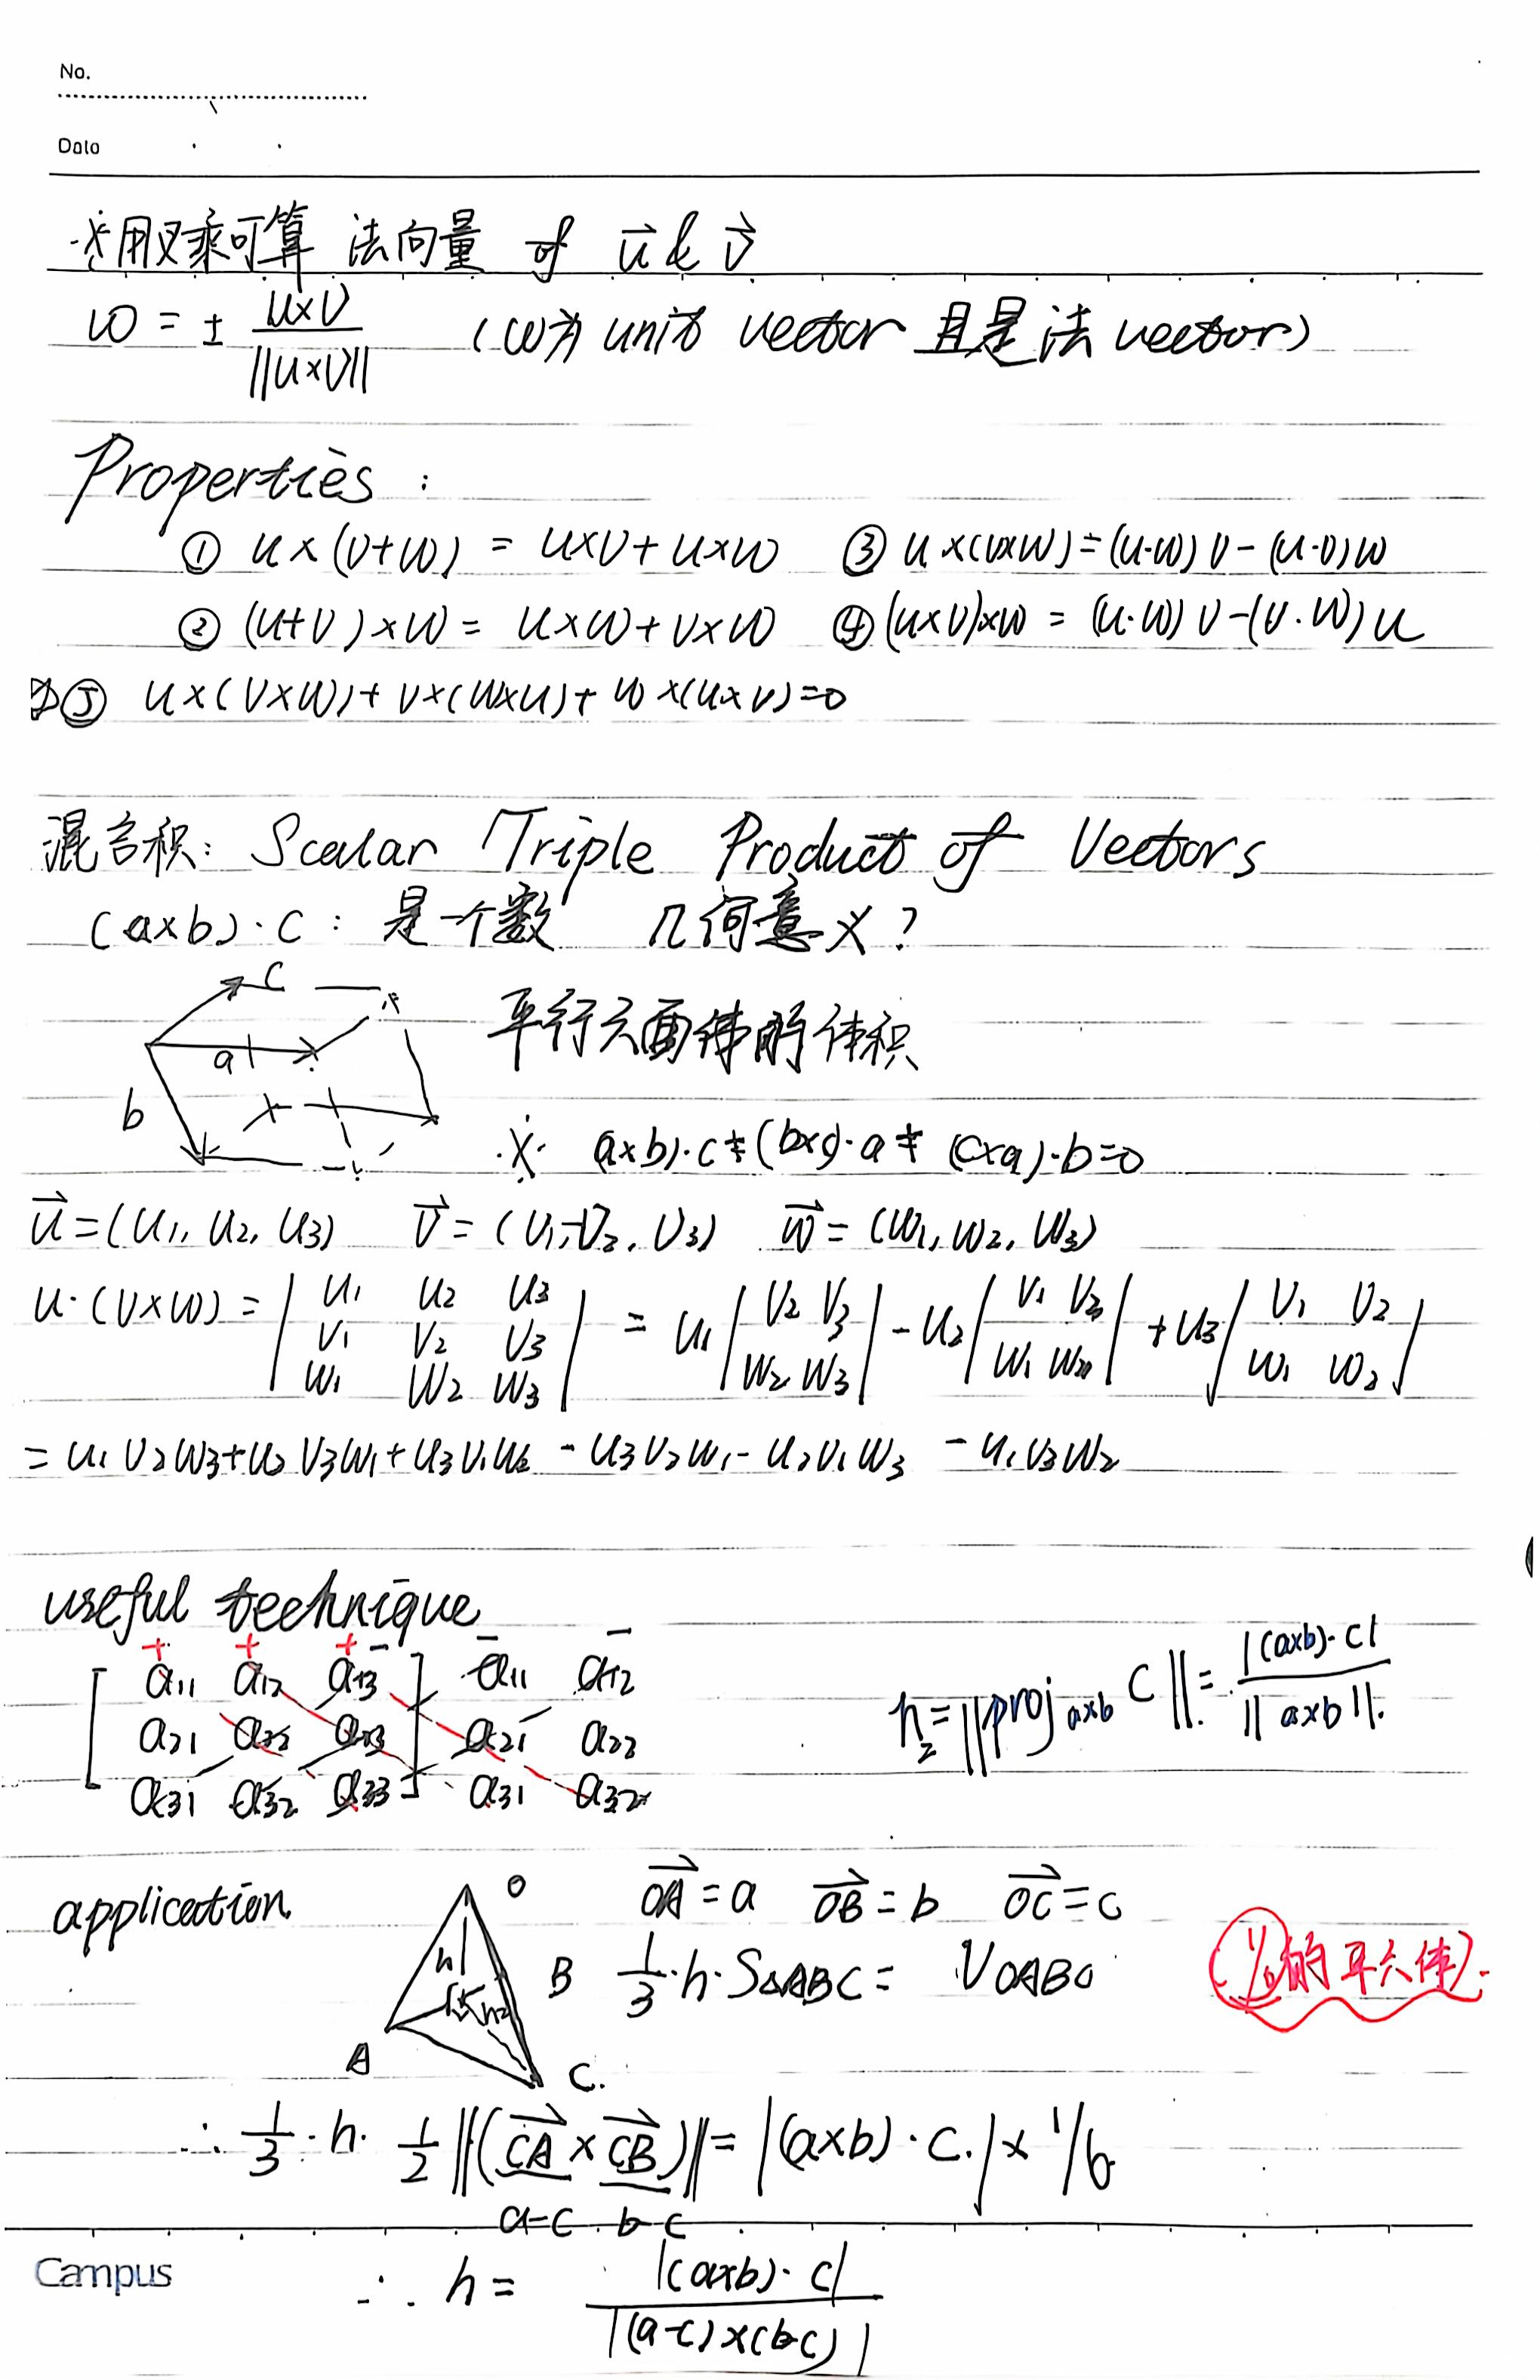 No.
Date
※用叉乘可算 法向量 of u⃗ & v⃗
w = ± u×v / ||u×v|| (w为 unit vector 且是法 vector)
Properties :
① u×(v+w) = u×v+u×w ③ u×(v×w)=(u·w)v-(u·v)w
② (u+v)×w = u×w+v×w ④ (u×v)×w = (u·w)v-(v·w)u
⑤ u×(v×w)+v×(w×u)+w×(u×v)=0
混合积: Scalar Triple Product of Vectors
(a×b)·c : 是一个数 几何意义?
c
a
b
平行六面体的体积
※ a×b)·c + (b×c)·a + (c×a)·b=0
u⃗=(u1, u2, u3) v⃗=(v1, v2, v3) w⃗=(w1, w2, w3)
u·(v×w)= | u1 u2 u3 | = u1 | v2 v3 | - u2 | v1 v3 | + u3 | v1 v2 |
| v1 v2 v3 |
| w1 w2 w3 | | w2 w3 | | w1 w3 | | w1 w2 |
= u1v2w3+u2v3w1+u3v1w2 - u3v2w1 - u2v1w3 - u1v3w2
useful technique
+ + + - - -
[ a11 a12 a13 ] a11 a12
a21 a22 a23 a21 a22
a31 a32 a33 a31 a32
h2=||proj a×b c||= |(a×b)·c| / ||a×b||.
application
O
B
A
C.
h
h2
OA⃗=a OB⃗=b OC⃗=c
1/3·h·S△ABC= VOABC
(1/6的平六体).
∴ 1/3·h· 1/2||(CA⃗×CB⃗)||=|(a×b)·c.|×1/6
a-c b-c
Campus
∴ h= |(a×b)·c| / |(a-c)×(b-c)|